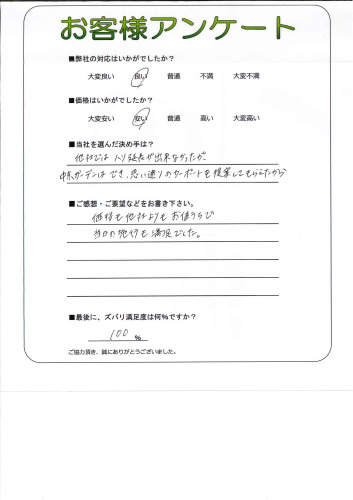 お客様アンケート
■弊社の対応はいかがでしたか？
大変良い 良い 普通 不満 大変不満
■価格はいかがでしたか？
大変安い 安い 普通 高い 大変高い
■当社を選んだ決め手は？
他社では入り延長が出来なかったが
ガーデンはでき、思い通りのカーポートを提案してもらえたから
■ご感想・ご要望などをお書き下さい。
価格も他社よりもお値うちで
当日の発行も満足でした。
■最後に、ズバリ満足度は何%ですか？
100 %
ご協力頂き、誠にありがとうございました。